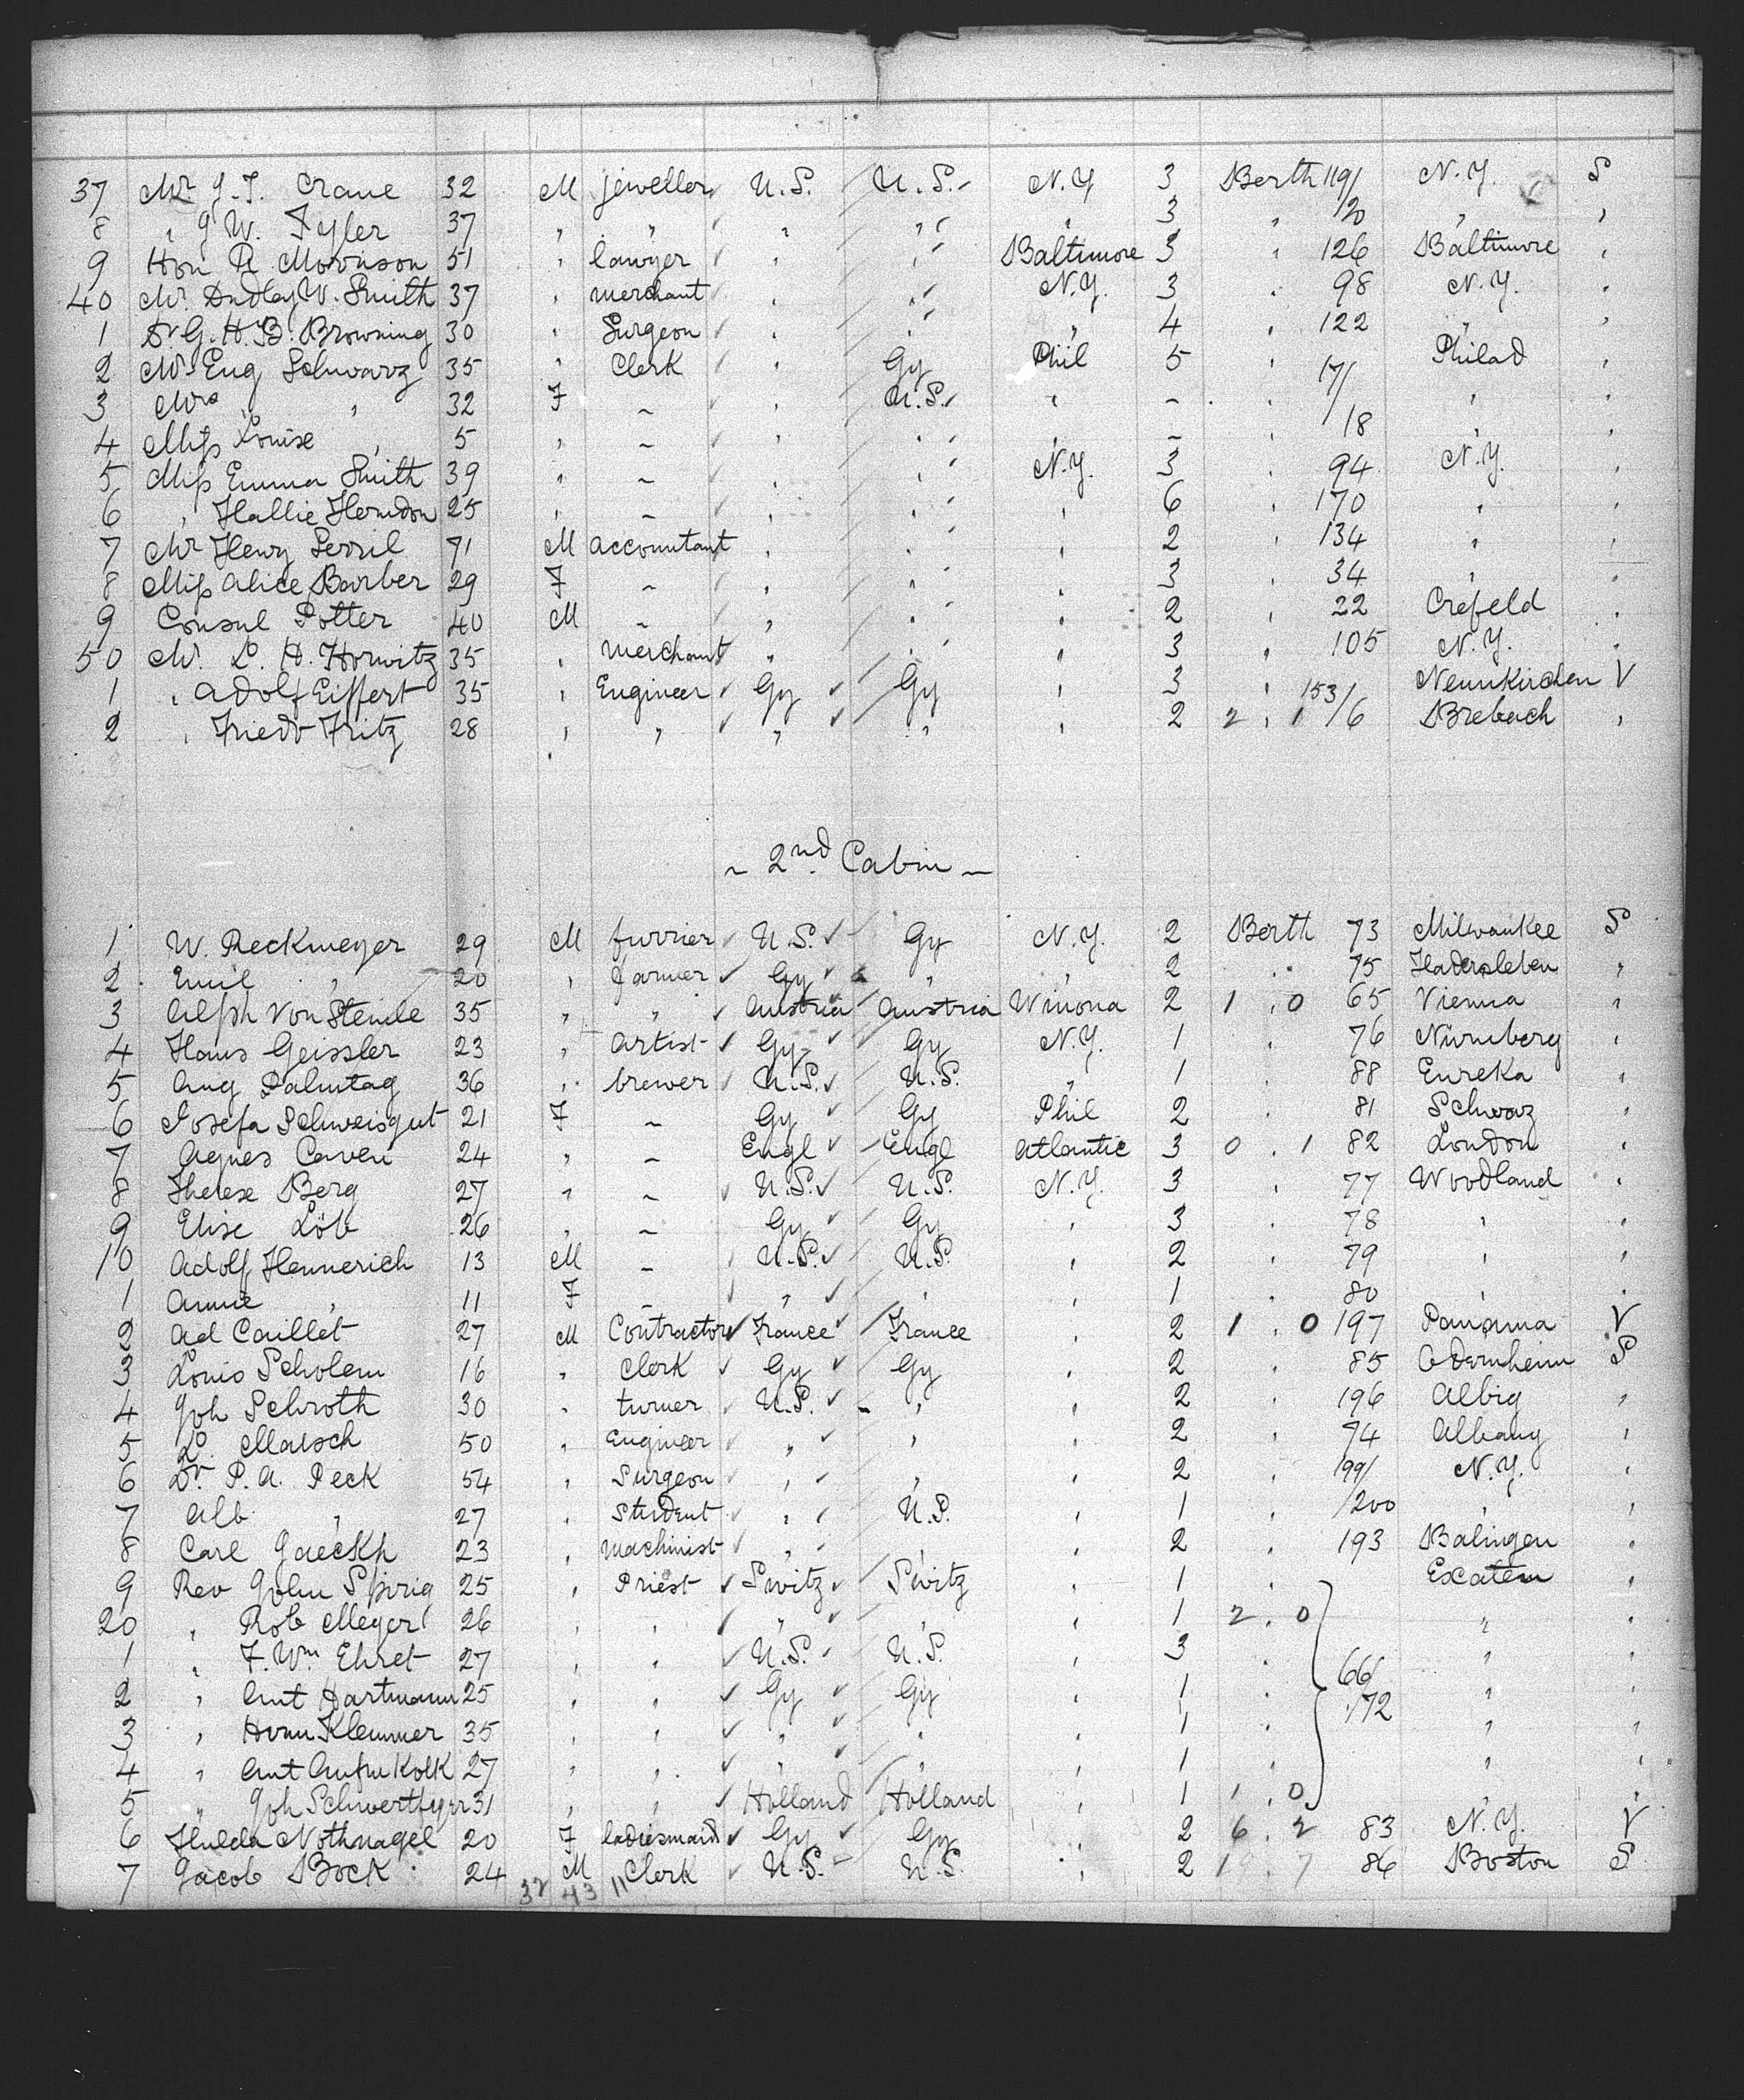 37 Mr. J. T. Crane 32 M jeweller U.S. U.S. N.Y. 3 Berth 119/ N.Y. S
8 " J W. Tyler 37 " " " " " 3 " /20 " "
9 Hon R Morrison 51 " lawyer " " Baltimore 3 " 126 Baltimore "
40 Mr. Dudley W. Smith 37 " merchant " " N.Y. 3 " 98 N.Y. "
1 Dr. G. H. B. Browning 30 " Surgeon " " " 4 " 122 " "
2 Mr Eug Schwarz 35 " Clerk " Gy Phil 5 " 17/ Philad "
3 Mrs " 32 F ~ " U.S. " ~ " / " "
4 Miss Louise " 5 " ~ " " " ~ " 18 " "
5 Miss Emma Smith 39 " ~ " " N.Y. 3 " 94 N.Y. "
6 " Hallie Herndon 25 " ~ " " " 6 " 170 " "
7 Mr Henry Serril 71 M accountant " " " 2 " 134 " "
8 Miss Alice Barber 29 F ~ " " " 3 " 34 " "
9 Consul Potter 40 M ~ " " " 2 " 22 Crefeld "
50 Mr. L. H. Horwitz 35 " merchant " " " 3 " 105 N.Y. "
1 " Adolf Eiffert 35 " Engineer Gy Gy " 3 " 153/ Neunkirchen V
2 " Friedr Fritz 28 " " " " " 2 2 . 1 /6 Brebach "
~ 2nd. Cabin ~
1 W. Reckmeyer 29 M furrier U.S. Gy N.Y. 2 Berth 73 Milwaukee S
2 Emil " 20 " farmer Gy " " 2 " 75 Hadersleben "
3 Alph von Steinle 35 " " Austria Austria Winona 2 1 . 0 65 Vienna "
4 Hans Geissler 23 " artist Gy Gy N.Y. 1 " 76 Nürnberg "
5 Aug Palmtag 36 " brewer U.S. U.S. " 1 " 88 Eureka "
6 Josefa Schweisgut 21 F ~ Gy Gy Phil 2 " 81 Schwaz "
7 Agnes Caven 24 " ~ Engl Engl Atlantic 3 0 . 1 82 London "
8 Therese Berg 27 " ~ U.S. U.S. N.Y. 3 " 77 Woodland "
9 Elise Löb 26 " ~ Gy Gy " 3 " 78 " "
10 Adolf Hennerich 13 M ~ U.S. U.S. " 2 " 79 " "
1 Annie " 11 F ~ " " " 1 " 80 " "
2 Ad Caillet 27 M Contractor France France " 2 1 . 0 197 Panama V
3 Louis Scholem 16 " Clerk Gy Gy " 2 " 85 Odernheim S
4 Joh Schroth 30 " turner U.S. " " 2 " 196 Albig "
5 L. Maisch 50 " Engineer " " " 2 " 74 Albany "
6 Dr. P. A. Peck 54 " Surgeon " " " 2 " 199/ N.Y. "
7 Alb " 27 " Student " U.S. " 1 " /200 " "
8 Carl Jaeckh 23 " machinist " " " 2 " 193 Balingen "
9 Rev John Spirig 25 " Priest Switz Switz " 1 " "
20 " Rob Meyer 26 " " " " " 1 2 . 0 " "
1 " F. Wm Ehret 27 " " U.S. U.S. " 3 " " "
2 " Ant Hartmann 25 " " Gy Gy " 1 " 66/172 " "
3 " Herm Klemmer 35 " " " " " 1 " " "
4 " Ant 27 " " " " " 1 " " "
5 " Joh 31 " " Holland Holland " 1 1 . 0 " "
6 Hulda Nothnagel 20 F ladiesmaid Gy Gy " 2 6 . 2 83 N.Y. V
7 Jacob Bock 24 M Clerk U.S. U.S. " 2 7 86 Boston S
32 43 11